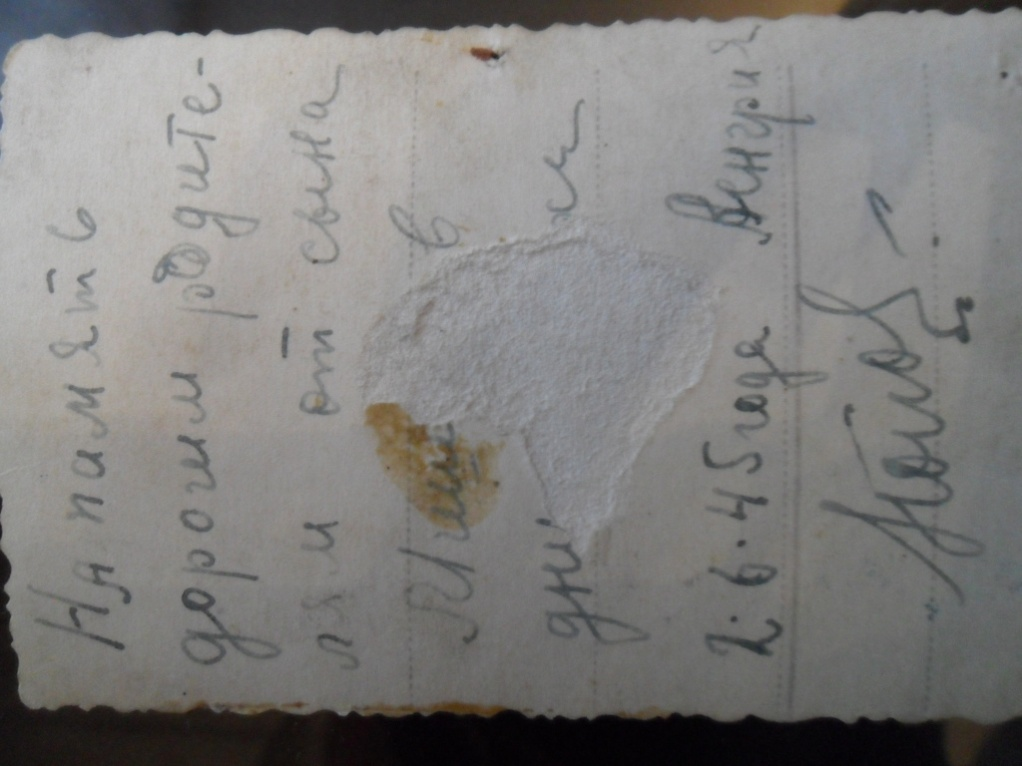 На память
дорогим родите-
лям от сына
Миши в
дни
2.6.45 года Венгрия